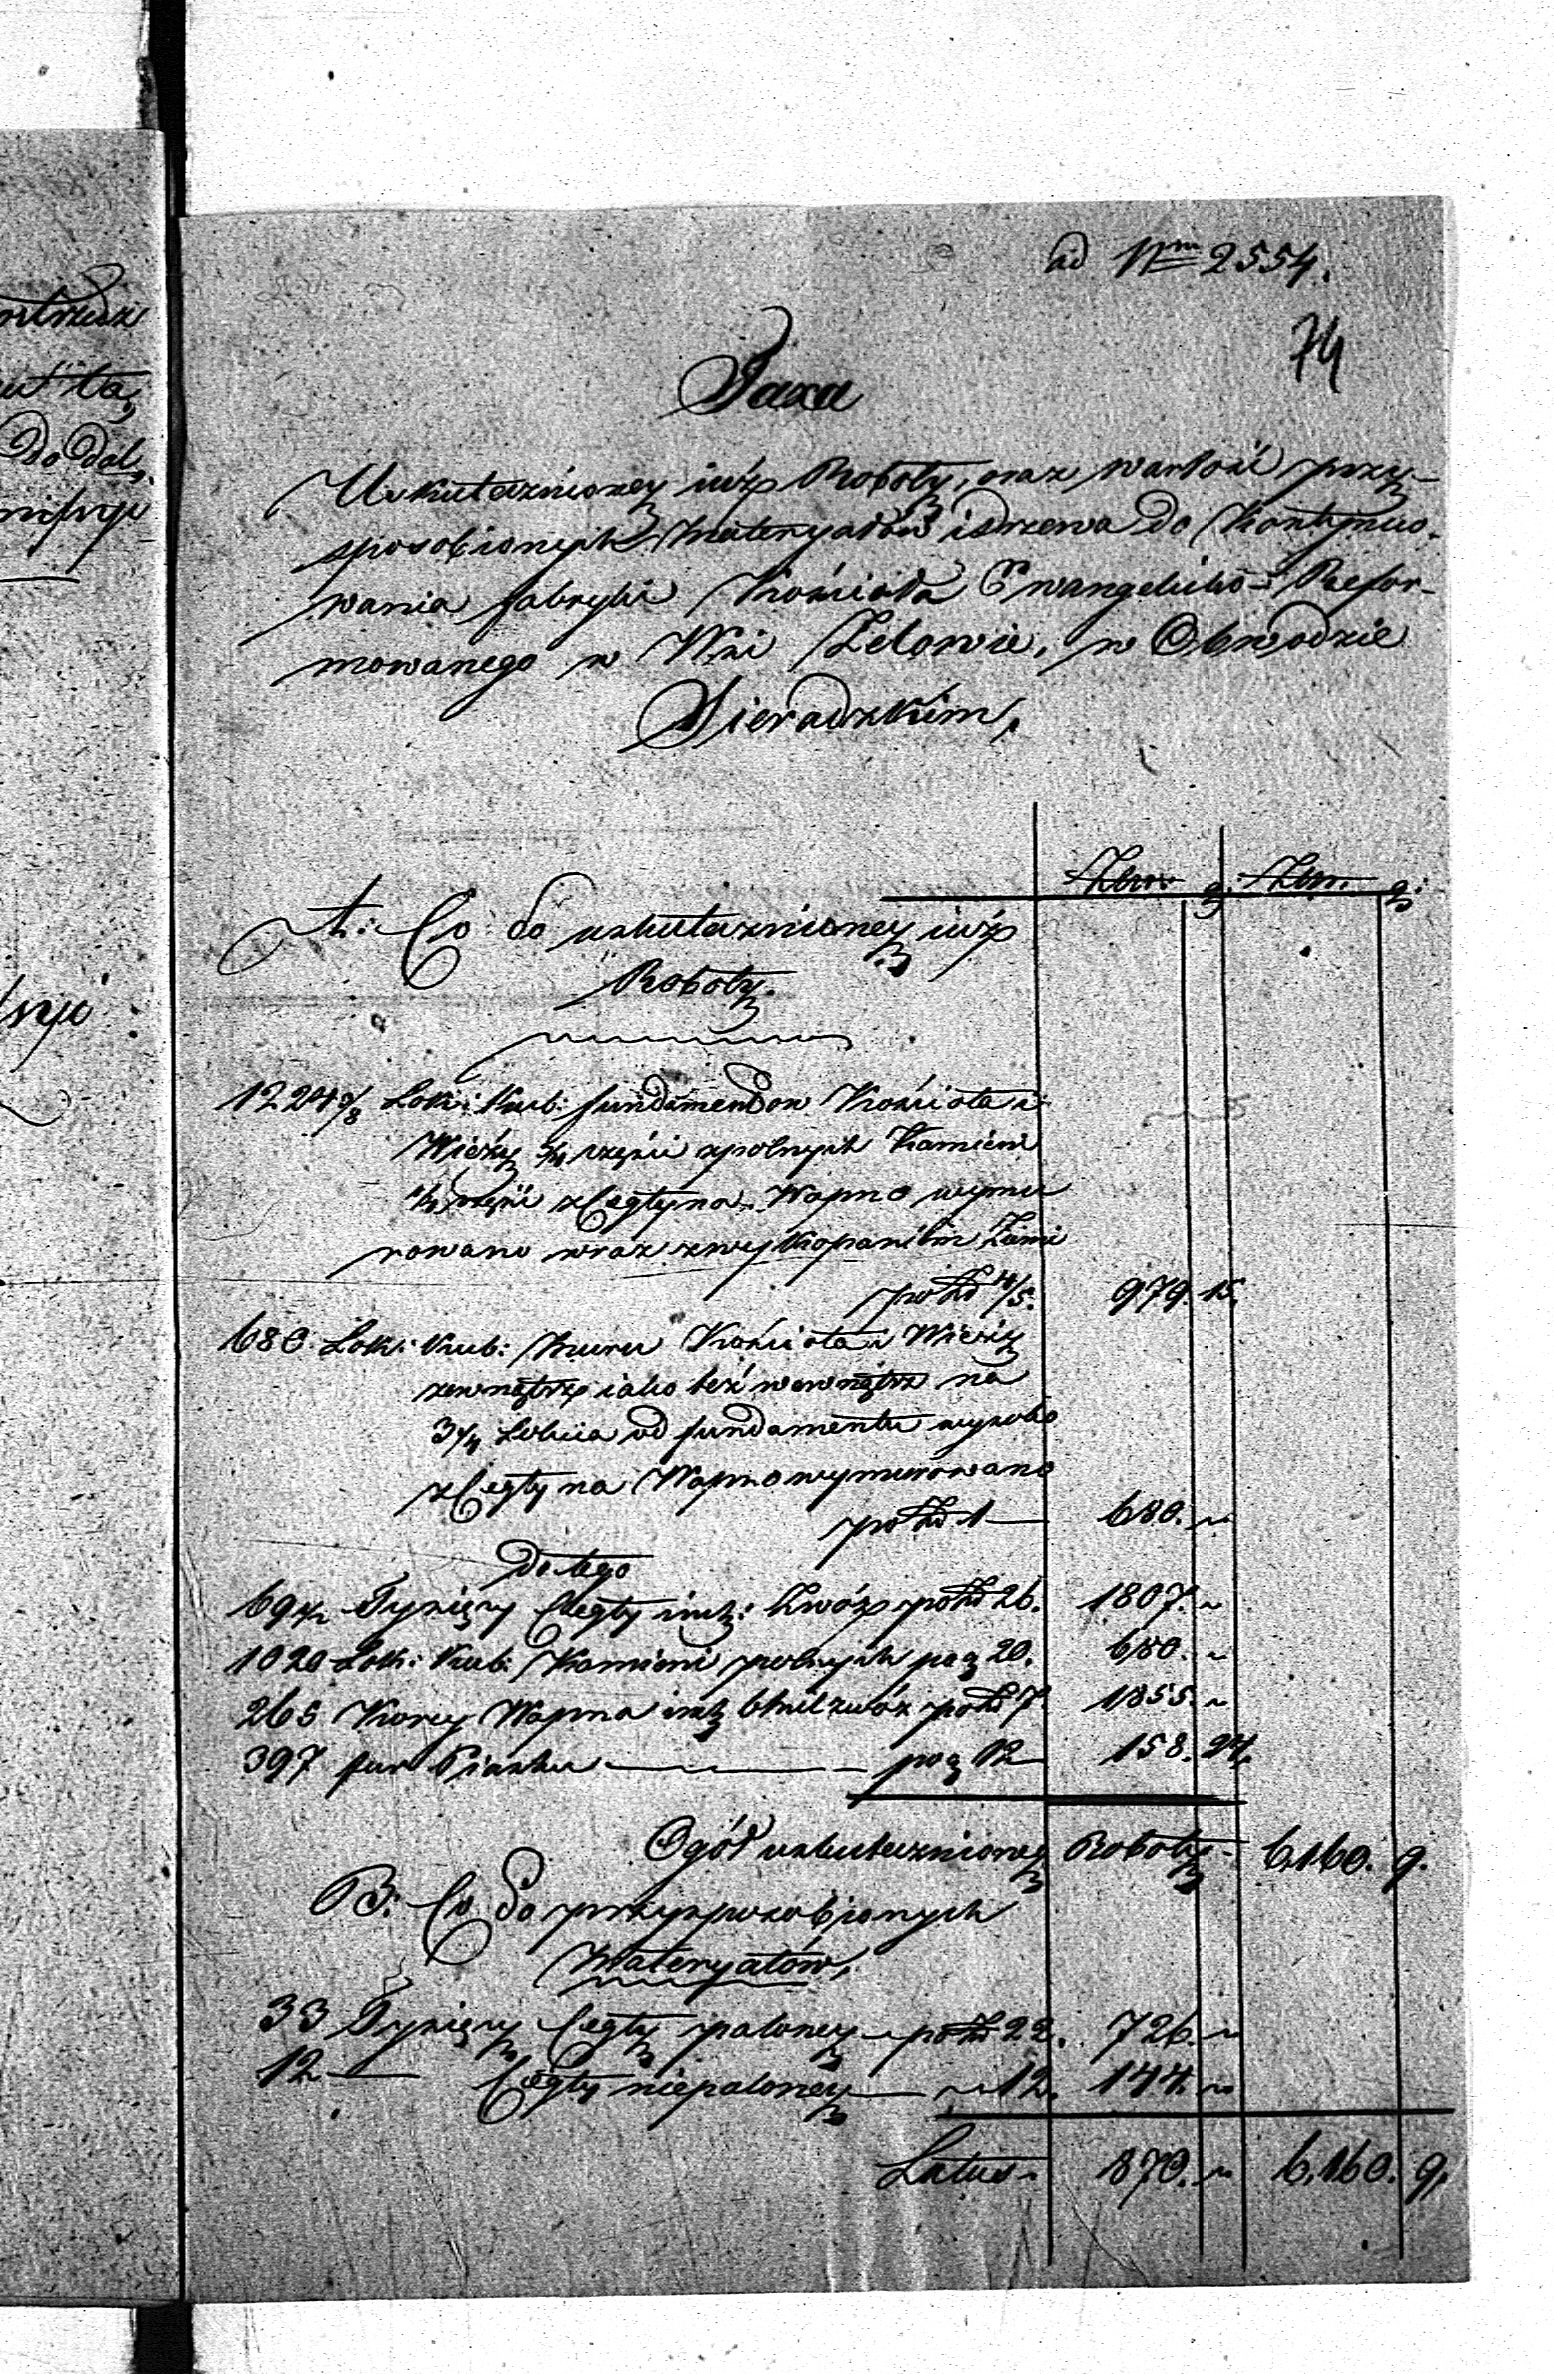 ad Nrm 2554.
74
Taxa
Uskutecznioney iuż Roboty, oraz wartość przy-
sposobionych Materyałów i drzewa do Kontynuo-
wania fabryki Kościoła Ewangelicko-Refor-
mowanego w Wsi Zelowie, w Obwodzie
Sieradzkim,
Złot. g. Złot. g:
A: Co do uskuteczn­ioney iuż
Roboty.
1224 3/8 Łok: Kub: fundamentów Kościoła i
Wieży 3/4 części z polnych Kamieni
1/4 części z Cegły na Wapno wymu
rowano wraz z wykopaniem Ziemi
po Zł 4/5. 979. 15.
680 Łok: Kub: Muru Kościoła i Wieży
zewnątrz iako też wewnątrz na
3/4 Łokcia od fundamentu wysoko
z Cegły na Wapno wymurowano
po Zł 1 — 680. ~
do tego
69 1/2 Tysięcy Cegły incl: Zwóz po Zł 26. 1807. ~
1020 Łok: Kub: Kamieni polnych po g 20. 680. ~
265 Korcy Wapna incl: zwóz po Zł 7. 1855. ~
397 fur Piasku — po g 12 — 158. 24.
Ogół uskuteczn­ioney Roboty. 6,160. 9.
B: Co do przysposobionych
Materyałów,
33 Tysięcy Cegły paloney po Zł 22. 726. ~
12 — Cegły niepaloney — ~ 12. 144. ~
Latus ~ 870. ~ 6,160. 9.